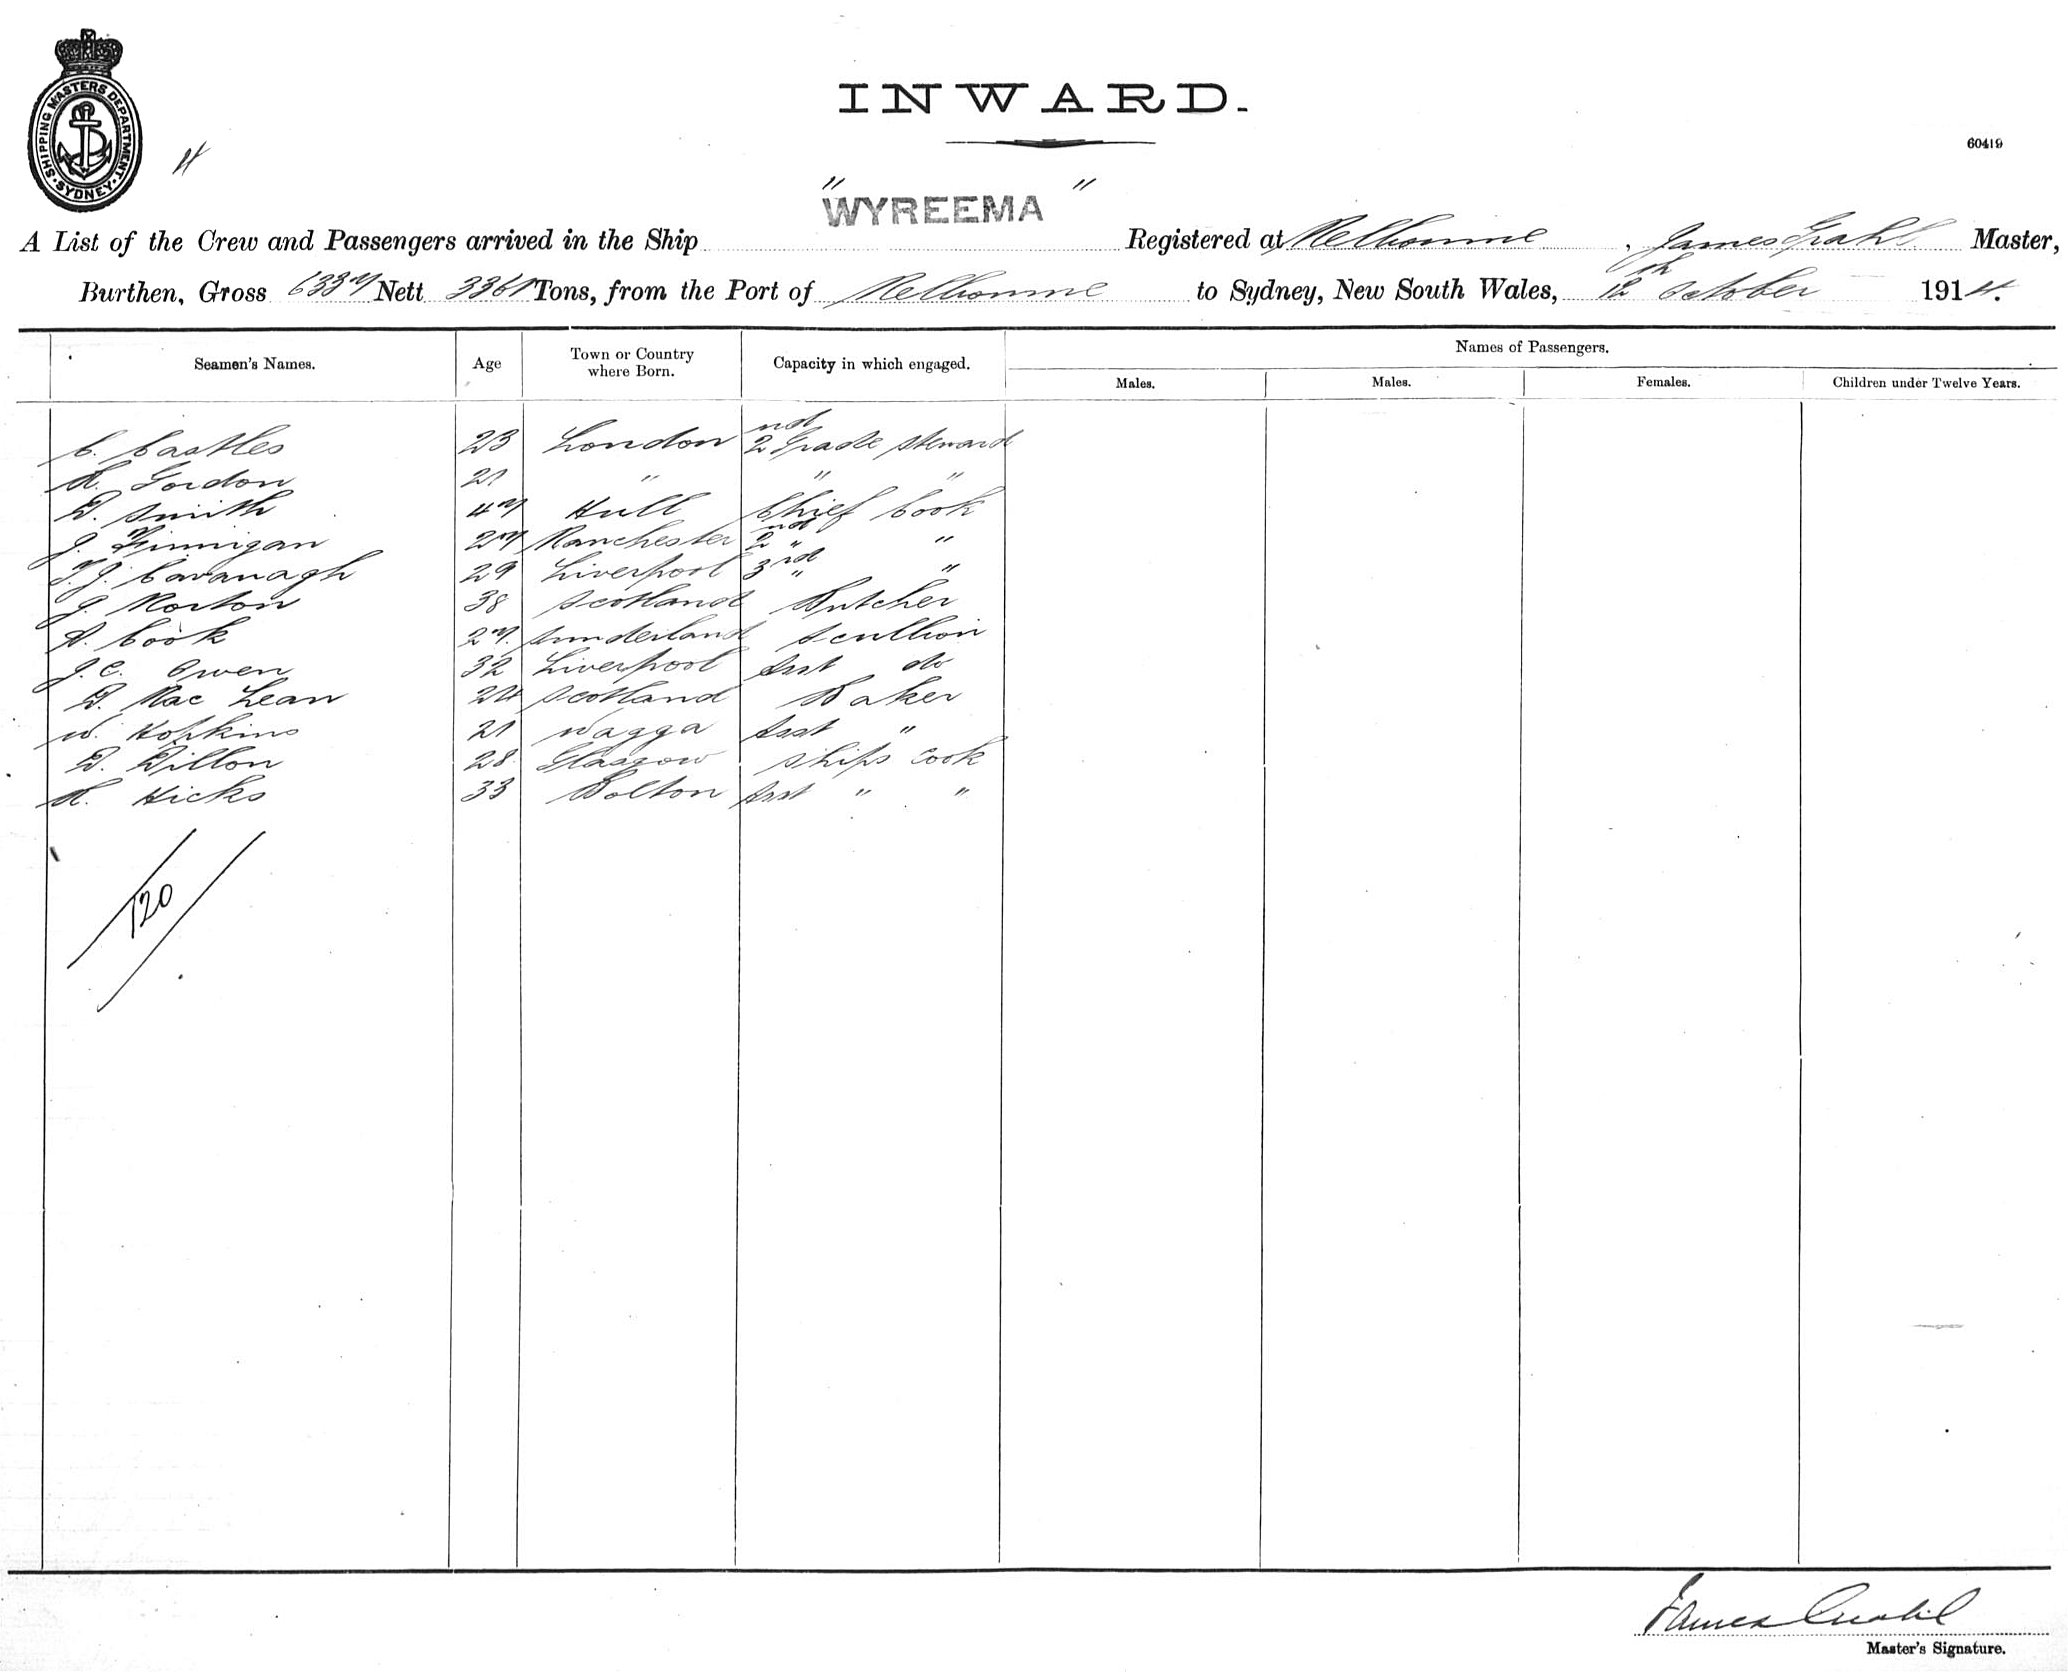 INWARD.
SHIPPING MASTERS DEPARTMENT
SYDNEY
4
60419
"WYREEMA"
A List of the Crew and Passengers arrived in the Ship Registered at Melbourne, James Grahl Master,
Burthen, Gross 6337 Nett 3361 Tons, from the Port of Melbourne to Sydney, New South Wales, 12th October 1914.
Seamen's Names. Age Town or Country where Born. Capacity in which engaged. Names of Passengers.
Males. Males. Females. Children under Twelve Years.
C. Castles 23 London 2nd Grade Steward
R. Gordon 21 " " "
D. Smith 47 Hull Chief Cook
J. Finnigan 27 Manchester 2nd " "
T. J. Cavanagh 29 Liverpool 3rd " "
J. Morton 38 Scotland Butcher
A. Cook 27 Sunderland Scullion
J. C. Owen 32 Liverpool Asst do
D. Mac Lean 24 Scotland Baker
W. Hopkins 21 Wagga Asst "
D. Dillon 28 Glasgow Ships Cook
R. Hicks 33 Bolton Asst " "
120
James Grahl
Master's Signature.